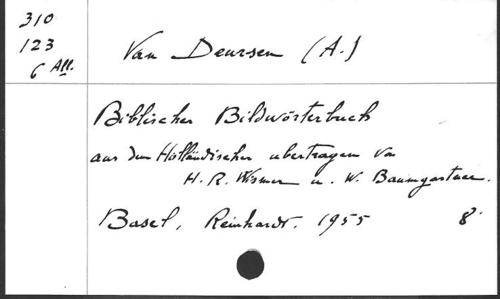 310
123
6 All.
Van Deursen (A.)
Biblischer Bildwörterbuch
aus dem Holländischen ubertragen von
H. R. Wismer u. W. Baumgartner.
Basel, Reinhardt. 1955 8°